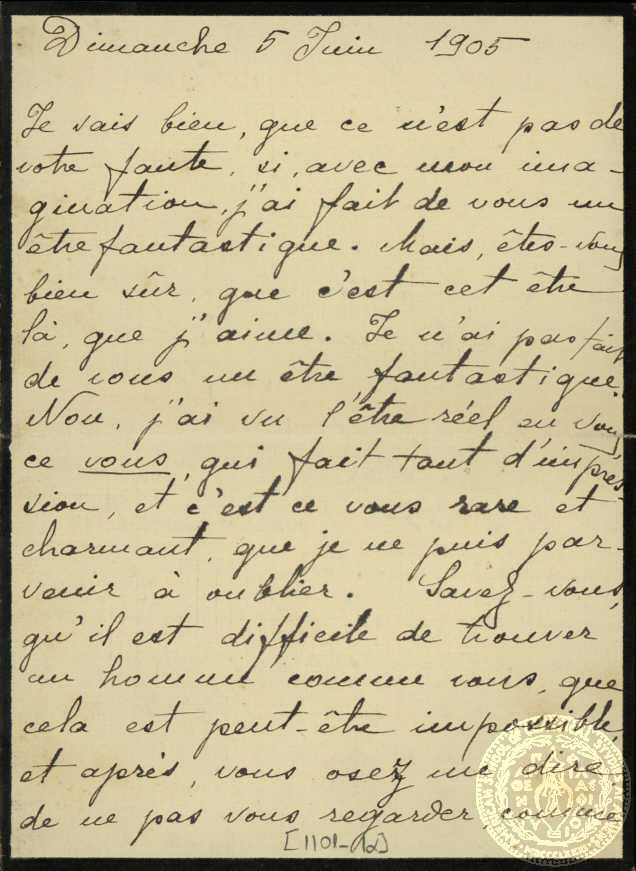 Dimanche 5 Juin 1905
Je sais bien, que ce n'est pas de
votre faute, si, avec mon ima-
gination, j'ai fait de vous un
être fantastique. Mais, êtes-vous
bien sûr, que c'est cet être
là, que j'aime. Je n'ai pas fait
de vous un être fantastique.
Non, j'ai vu l'être réel en vous
ce vous, qui fait tant d'impres-
sion, et c'est ce vous rare et
charmant, que je ne puis par-
venir à oublier. Savez-vous,
qu'il est difficile de trouver
un homme comme vous, que
cela est peut-être impossible,
et après, vous osez me dire,
de ne pas vous regarder, comme
[1101-12]